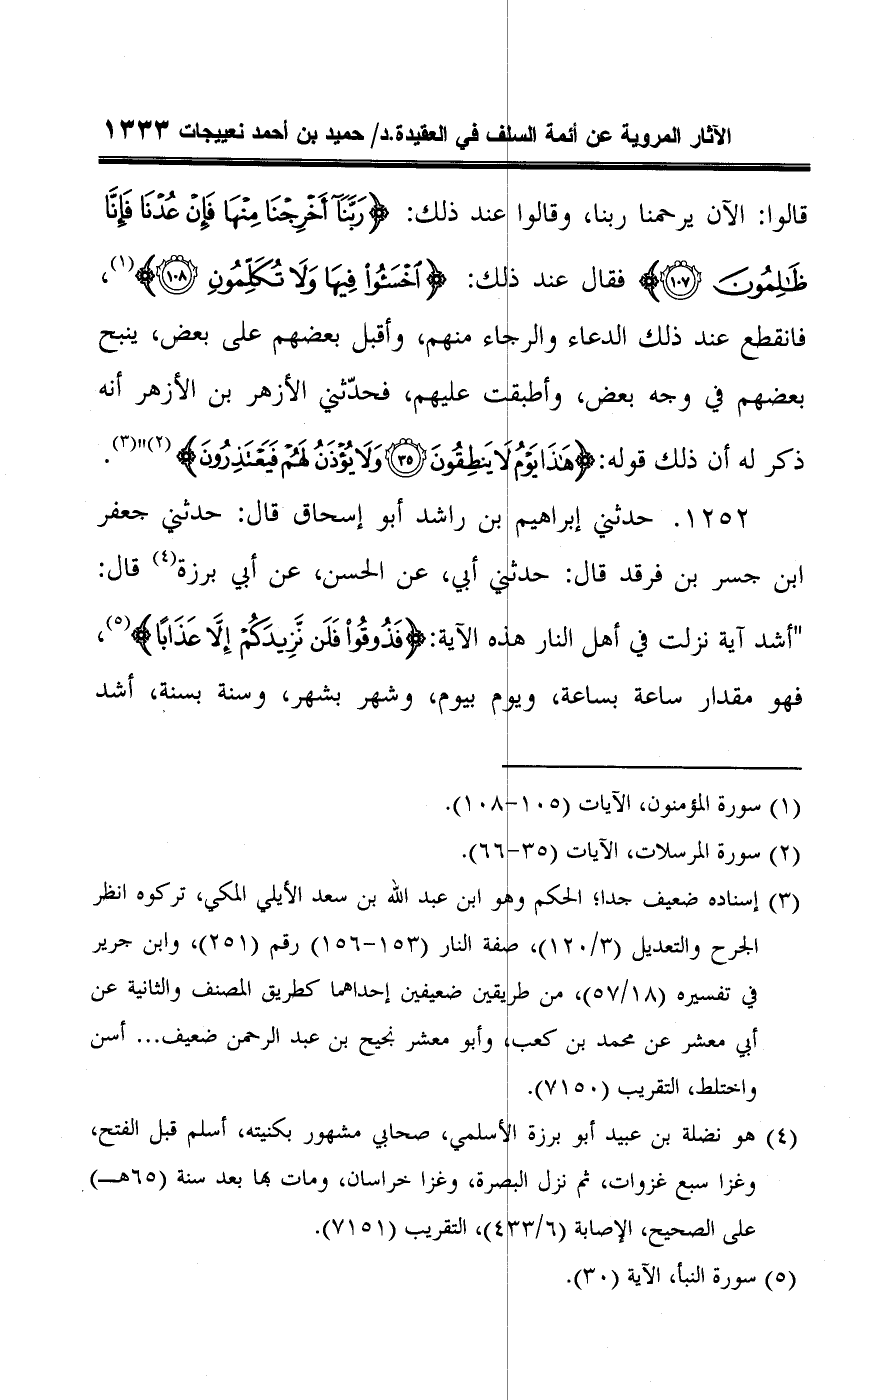 الآثار المروية عن أئمة السلف في العقيدة.د/ حميد بن أحمد نعييجات ١٣٣٣
قالوا: الآن يرحمنا ربنا، وقالوا عند ذلك: ﴿رَبَّنَآ أَخْرِجْنَا مِنْهَا فَإِنْ عُدْنَا فَإِنَّا
ظَٰلِمُونَ ١٠٧﴾ فقال عند ذلك: ﴿ٱخْسَـُٔوا۟ فِيهَا وَلَا تُكَلِّمُونِ ١٠٨﴾(١)،
فانقطع عند ذلك الدعاء والرجاء منهم، وأقبل بعضهم على بعض، ينبح
بعضهم في وجه بعض، وأطبقت عليهم، فحدّثني الأزهر بن الأزهر أنه
ذكر له أن ذلك قوله: ﴿هَٰذَا يَوْمُ لَا يَنطِقُونَ ٣٥ وَلَا يُؤْذَنُ لَهُمْ فَيَعْتَذِرُونَ﴾(٢)"(٣).
١٢٥٢. حدثني إبراهيم بن راشد أبو إسحاق قال: حدثني جعفر
ابن جسر بن فرقد قال: حدثني أبي، عن الحسن، عن أبي برزة(٤) قال:
"أشد آية نزلت في أهل النار هذه الآية: ﴿فَذُوقُوا۟ فَلَن نَّزِيدَكُمْ إِلَّا عَذَابًا﴾(٥)،
فهو مقدار ساعة بساعة، ويوم بيوم، وشهر بشهر، وسنة بسنة، أشد
(١) سورة المؤمنون، الآيات (١٠٥-١٠٨).
(٢) سورة المرسلات، الآيات (٣٥-٦٦).
(٣) إسناده ضعيف جدا؛ الحكم وهو ابن عبد الله بن سعد الأيلي المكي، تركوه انظر
الجرح والتعديل (١٢٠/٣)، صفة النار (١٥٣-١٥٦) رقم (٢٥١)، وابن جرير
في تفسيره (٥٧/١٨)، من طريقين ضعيفين إحداهما كطريق المصنف والثانية عن
أبي معشر عن محمد بن كعب، وأبو معشر نجيح بن عبد الرحمن ضعيف... أسن
واختلط، التقريب (٧١٥٠).
(٤) هو نضلة بن عبيد أبو برزة الأسلمي، صحابي مشهور بكنيته، أسلم قبل الفتح،
وغزا سبع غزوات، ثم نزل البصرة، وغزا خراسان، ومات بها بعد سنة (٦٥هـ)
على الصحيح، الإصابة (٤٣٣/٦)، التقريب (٧١٥١).
(٥) سورة النبأ، الآية (٣٠).